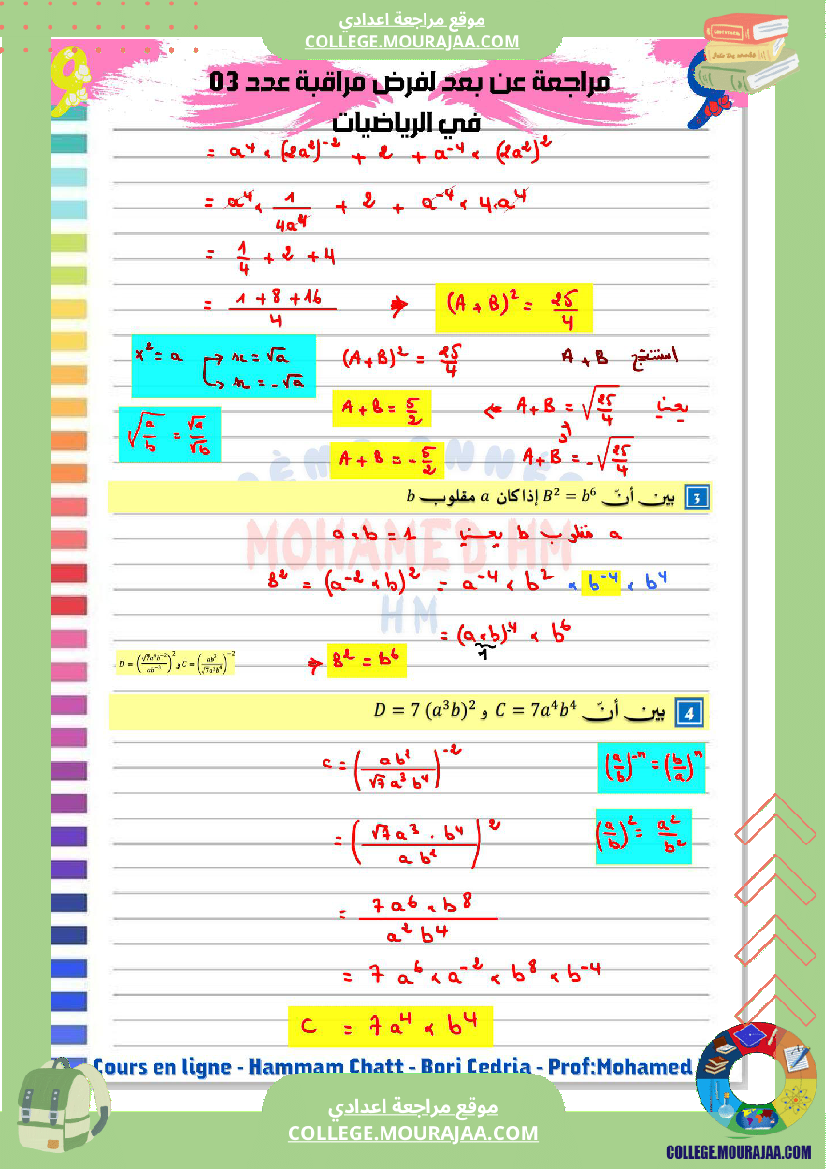 موقع مراجعة اعدادي
COLLEGE.MOURAJAA.COM
مراجعة عن بعد لفرض مراقبة عدد 03
في الرياضيات
= a⁴ × (2a²)⁻² + 2 + a⁻⁴ × (2a²)²
= a⁴ × 1/4a⁴ + 2 + a⁻⁴ × 4a⁴
= 1/4 + 2 + 4
= (1 + 8 + 16)/4 → (A + B)² = 25/4
x² = a → x = √a
→ x = -√a
(A + B)² = 25/4
استنتج A + B
يعني A + B = √(25/4) ⇐ A + B = 5/2
أو
√(a/b) = √a/√b
A + B = -√(25/4)
A + B = -5/2
3 بين أنّ B² = b⁶ إذا كان a مقلوب b
a مقلوب b يعني a × b = 1
B² = (a⁻² × b)² = a⁻⁴ × b² × b⁻⁴ × b⁴
= (a × b)⁻⁴ × b⁶
1
⇒ B² = b⁶
4 بين أنّ C = 7a⁴b⁴ و D = 7 (a³b)²
C = (ab²/√7a³b⁴)⁻²
(a/b)⁻ⁿ = (b/a)ⁿ
= (√7a³ · b⁴/ab²)²
(a/b)² = a²/b²
= 7a⁶ × b⁸/a²b⁴
= 7 a⁶ × a⁻² × b⁸ × b⁻⁴
C = 7a⁴ × b⁴
MOHAMED HM
HM
Cours en ligne - Hammam Chatt - Borj Cedria - Prof:Mohamed
موقع مراجعة اعدادي
COLLEGE.MOURAJAA.COM
COLLEGE.MOURAJAA.COM